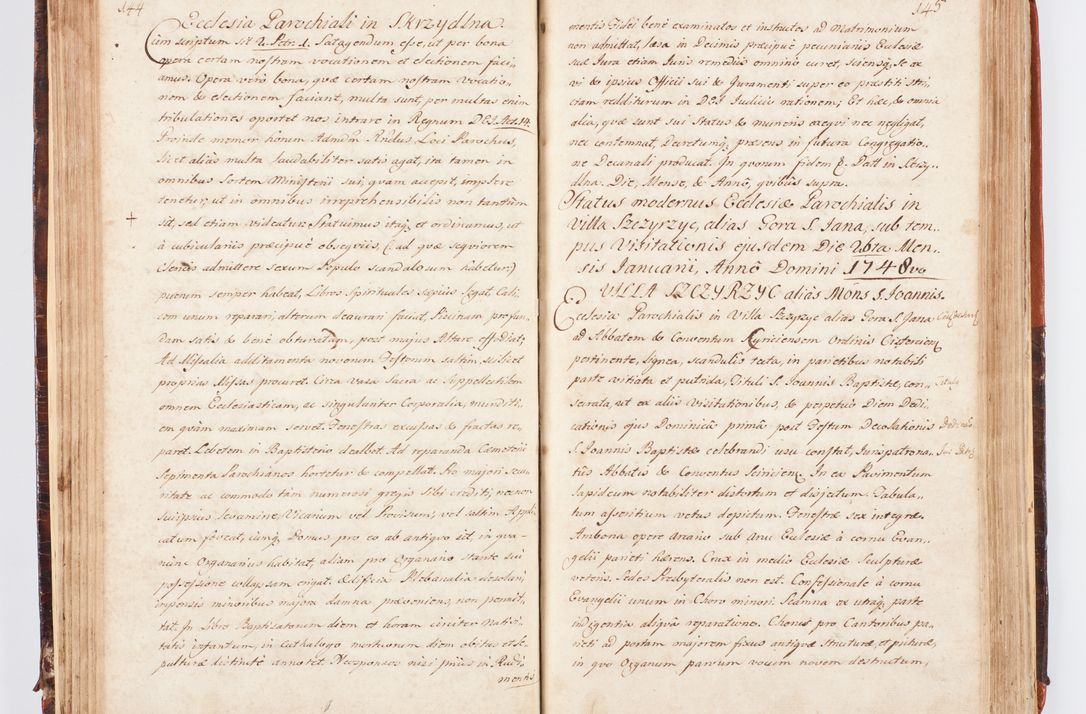 144
Ecclesia Parochiali in Skrzydlna
Cùm scriptum sit 2. Petr. 1. Satagendum esse, ut per bona
opera certam nostram vocationem et electionem faci„
amus. Opera verò bona, quæ certam nostram vocatio„
nem & electionem faciant, multa sunt, per multas enim
tribulationes oportet nos intrare in Regnum DEI. Act. 14.
Proinde memor horum Admdm Rndus Loci Parochus,
licet aliàs multa laudabiliter satis agat, ita tamen in
omnibus sortem Ministerii sui, quam accepit, implere
tenetur, ut in omnibus irreprehensibilis non tantùm
sit, sed etiam videatur. Statuimus itaq; et ordinamus, ut
à cubicularis præcipuè obseqviis, (: ad qvæ seqviorem
admittere sexum Populo scandalosum habetur:)
puerum semper habeat, Libros Spirituales sæpius legat, Cali„
cem unum reparari, alterum deaurari faciat, Piscinam profun„
dam satis & benè obturatam, post majus Altare effodiat,
Ad Missalia additamenta novorum Festorum saltim, scilicet
proprias Missas procuret. Circa vasa sacra ac suppellectilem
omnem Ecclesiasticam, ac singulariter Corporalia, munditi„
em qvàm maximam servet. Fenestras excussas & fractas re„
paret. Lebetem in Baptisterio dealbet. Ad reparanda Cæmeterii
Sepimenta Parochianos hortetur & compellat. Pro majori secu„
ritate ac commodo tàm numerosi gregis sibi crediti, necnon
suiipsius levamine, Vicarium vel Provisum, vel saltim Appli„
catum foveat, cùmq; Domus pro eo ab antiqvo sit, in qva„
nunc Organarius habitat, aliam pro Organario stante sui
possessione collapsam erigat. Ædificia Plebanalia desolari,
impensis minoribus majora damna præveniens, non permit„
tat. In Libro Baptisatorum diem et horam circiter nativi„
tatis infantum, in Cathalogo mortuorum diem obitûs et se„
pulturæ distinctè annotet. Neosponsos nisi priùs in Rudi„
mentis
145
mentis Fidei benè examinatos et instructos ad Matrimonium
non admittat, læsa in Decimis præcipuè pecuniariis Ecclesiæ
suæ Jura etiam Juris remediis omninò curet, sciensq; se ex
vi & ipsius Officii sui & Juramenti super eo præstiti stri„
ctam redditurum in DEI Judiciis rationem; Et hæc, & omnia
alia, qvæ sunt sui Status & muneris exeqvi nec negligat,
nec contemnat, Decretumq; præsens in futura Congregatio„
ne Decanali producat. In qvorum fidem &. Datt in Skrzy„
dlna. Die, Mense, & Annô, qvibùs supra.
Status modernus Ecclesiæ Parochialis in
Villa Szczyrzyc, alias Gora S. Jana, sub tem„
pus Visitationis ejusdem Die Men„
sis Januarii, Annô Domini 1748vo
VILLA SZCZYRZYC aliàs Mons S. Joannis.
Ecclesia Parochialis in Villa Szczyrzyc alias Gora S. Jana
ad Abbatem & Conventum Cyriciensem Ordinis Cisterciens;
pertinente, lignea, scandulis tecta, in parietibus notabili
parte vitiata et putrida, Tituli S. Joannis Baptistæ, con„
Titulus
secrata, ut ex aliis Visitationibus, & perpetuò Diem Dedi„
cationis ejus Dominicâ primâ post Festum Decollationis
S. Joannis Baptistæ celebrandi usu constat, Jurispatrona„
tûs Abbatis & Conventus Sciricien; In ea Pavimentum
lapideum notabiliter distortum et disjectum. Tabula„
tum asseritium vetus depictum. Fenestræ sex integræ.
Ambona opere Arario sub Arcu Ecclesiæ à cornu Evan„
gelii parieti hærens. Crux in medio Ecclesiæ Sculpturæ
veteris. Sedes Presbyteralis non est. Confessionale à cornu
Evangelii unum in Choro minori. Scamna ex utraq; parte
indigentia aliqvâ reparatione. Chorus pro Cantoribus pa„
rieti ad portam majorem fixus antiqvæ structuræ, et picturæ,
in qvo Organum parvum vocum novem destructum,